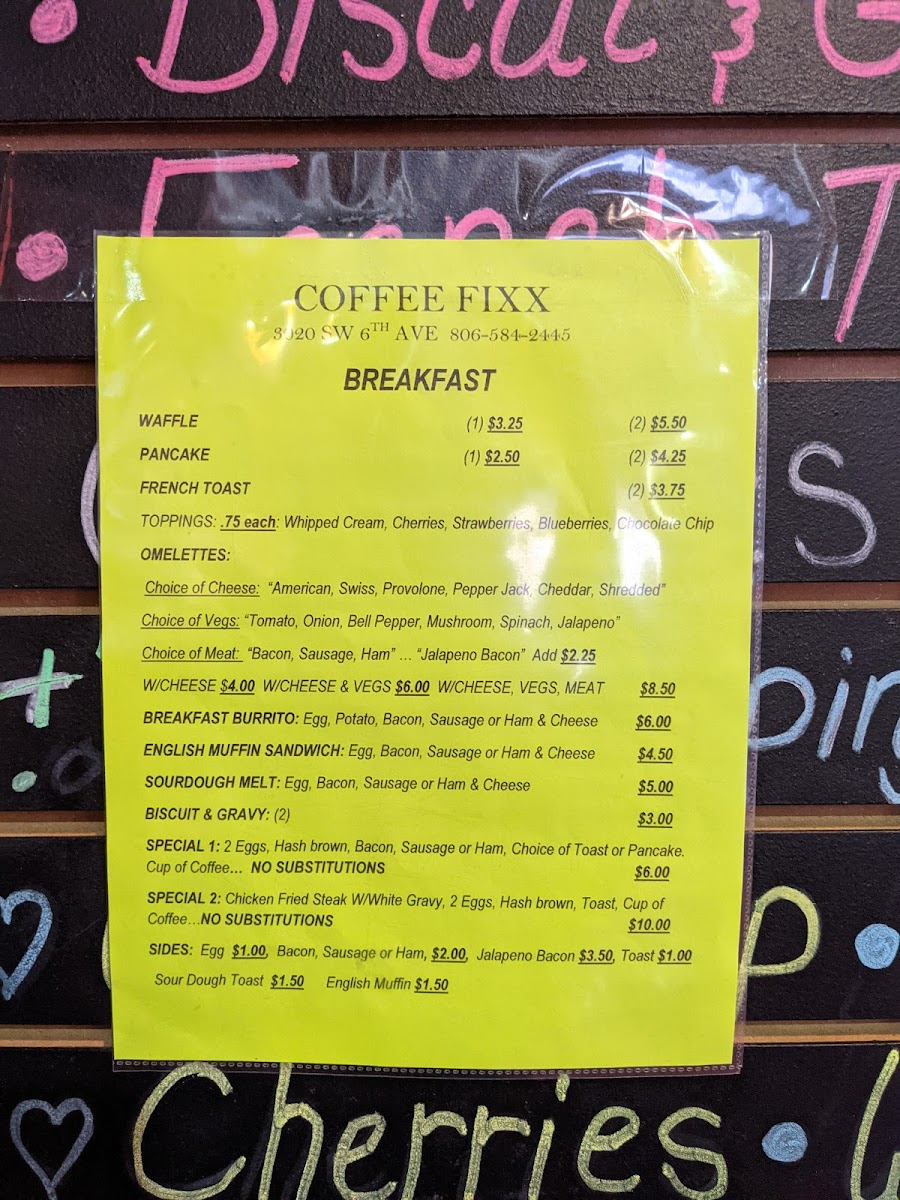 Biscuit & G
French T
COFFEE FIXX
3920 SW 6TH AVE 806-584-2445
BREAKFAST
WAFFLE (1) $3.25 (2) $5.50
PANCAKE (1) $2.50 (2) $4.25
FRENCH TOAST (2) $3.75
TOPPINGS: .75 each: Whipped Cream, Cherries, Strawberries, Blueberries, Chocolate Chip
OMELETTES:
Choice of Cheese: "American, Swiss, Provolone, Pepper Jack, Cheddar, Shredded"
Choice of Vegs: "Tomato, Onion, Bell Pepper, Mushroom, Spinach, Jalapeno"
Choice of Meat: "Bacon, Sausage, Ham" ... "Jalapeno Bacon" Add $2.25
W/CHEESE $4.00 W/CHEESE & VEGS $6.00 W/CHEESE, VEGS, MEAT $8.50
BREAKFAST BURRITO: Egg, Potato, Bacon, Sausage or Ham & Cheese $6.00
ENGLISH MUFFIN SANDWICH: Egg, Bacon, Sausage or Ham & Cheese $4.50
SOURDOUGH MELT: Egg, Bacon, Sausage or Ham & Cheese $5.00
BISCUIT & GRAVY: (2) $3.00
SPECIAL 1: 2 Eggs, Hash brown, Bacon, Sausage or Ham, Choice of Toast or Pancake.
Cup of Coffee... NO SUBSTITUTIONS $6.00
SPECIAL 2: Chicken Fried Steak W/White Gravy, 2 Eggs, Hash brown, Toast, Cup of
Coffee...NO SUBSTITUTIONS $10.00
SIDES: Egg $1.00, Bacon, Sausage or Ham, $2.00, Jalapeno Bacon $3.50, Toast $1.00
Sour Dough Toast $1.50 English Muffin $1.50
Cherries